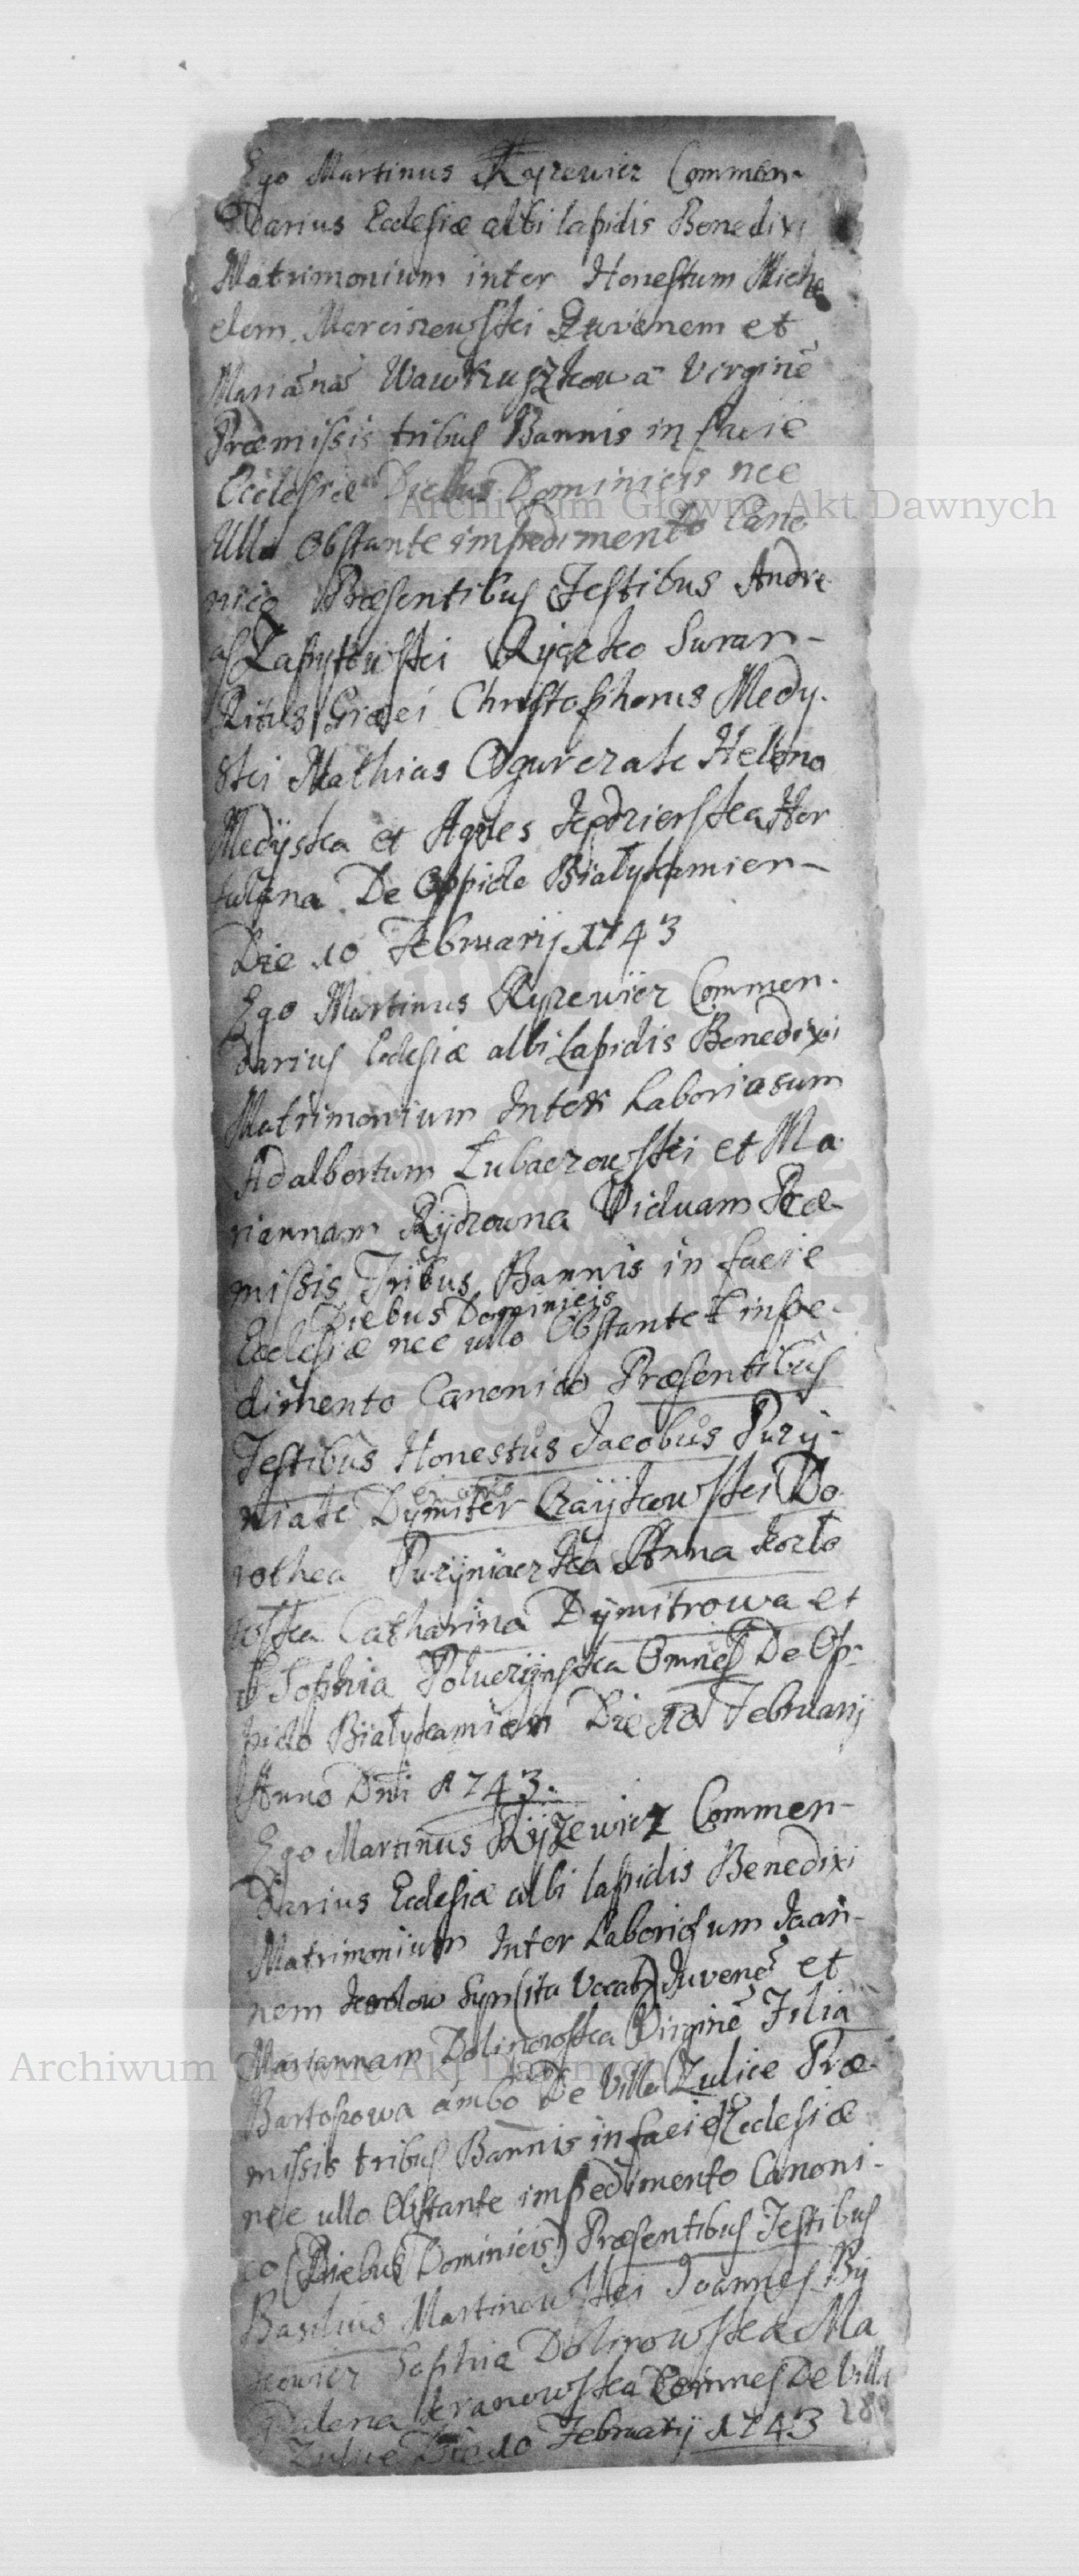 Ego Martinus Ryzewicz Commen-
darius Ecclesiæ albi lapidis Benedixi
Matrimonium inter Honestum Micha
elem Marciszewski Juvenem et
Mariãnã Wawruszkowa Virginẽ
Præmissis tribus Bannis in facie
Ecclesiæ Diebus Dominicis nec
Ullo Obstante impedimento Cano
nico Præsentibus Testibus Andre
as Ryczko Suran-
Ritus Græci Christophorus Medy-
ski Mathias Ogurczak Helena
Medÿska et Agnes
De Oppido Białykamien-
Die 10 Februarij 1743
Ego Martinus Ryzewicz Commen-
darius Ecclesiæ albi Lapidis Benedixi
Matrimonium Inter Laboriosum
Adalbertum Lubaczowski et Ma
riannam Rÿdzowna Viduam Præ-
missis Tribus Bannis in facie
Diebus Dominicis
Ecclesiæ nec ullo Obstante impe-
dimento Canonico Præsentibus
Testibus Honestus Jacobus Purÿ-
niak Dymiter Do-
rothea Purÿniaczka Anna Kozło
wska Catharina Dÿmitrowa et
Sophia Omnes De Op-
pido Białykamien Die 10 Februarij
Anno Dni 1743.
Ego Martinus Rÿzewicz Commen-
darius Ecclesiæ albi lapidis Benedixi
Matrimonium Inter Laboriosum Joan-
nem Syn (ita Vocat) Juvenẽ et
Mariannam Virginẽ Filia
Bartoszowa ambo De Villa Zulice Præ-
missis tribus Bannis in facie Ecclesiæ
nec ullo Obstante impedimento Canoni-
co (Diebus Dominicis) Præsentibus Testibus
Basilius Martinowski Joannes By
kowicz Sophia Dolinowska Ma
gdalena Omnes De Villa
Zulice Die 10 Februarij 1743
Archiwum Główne Akt Dawnych
Archiwum Główne Akt Dawnych